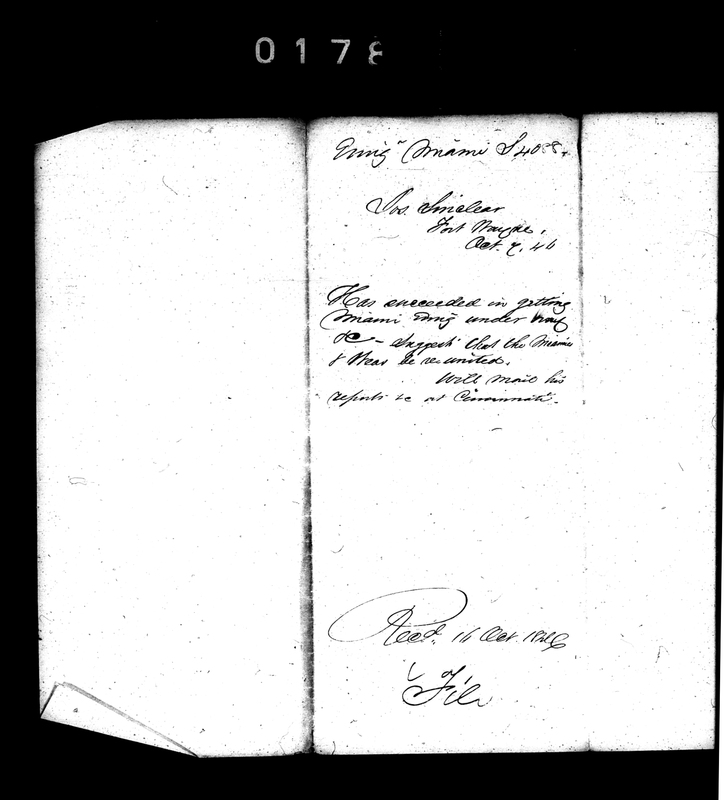 0178
Emigⁿ Miami S 4088.
Jos. Sinclear
Fort Wayne,
Oct. 7, 46
Has succeeded in getting
Miami Emigⁿ under way
&c – Suggests that the Miamis
& Weas be re united.
Will mail his
reports &c at Cincinnati.
Recd. 16 Oct. 1846
File